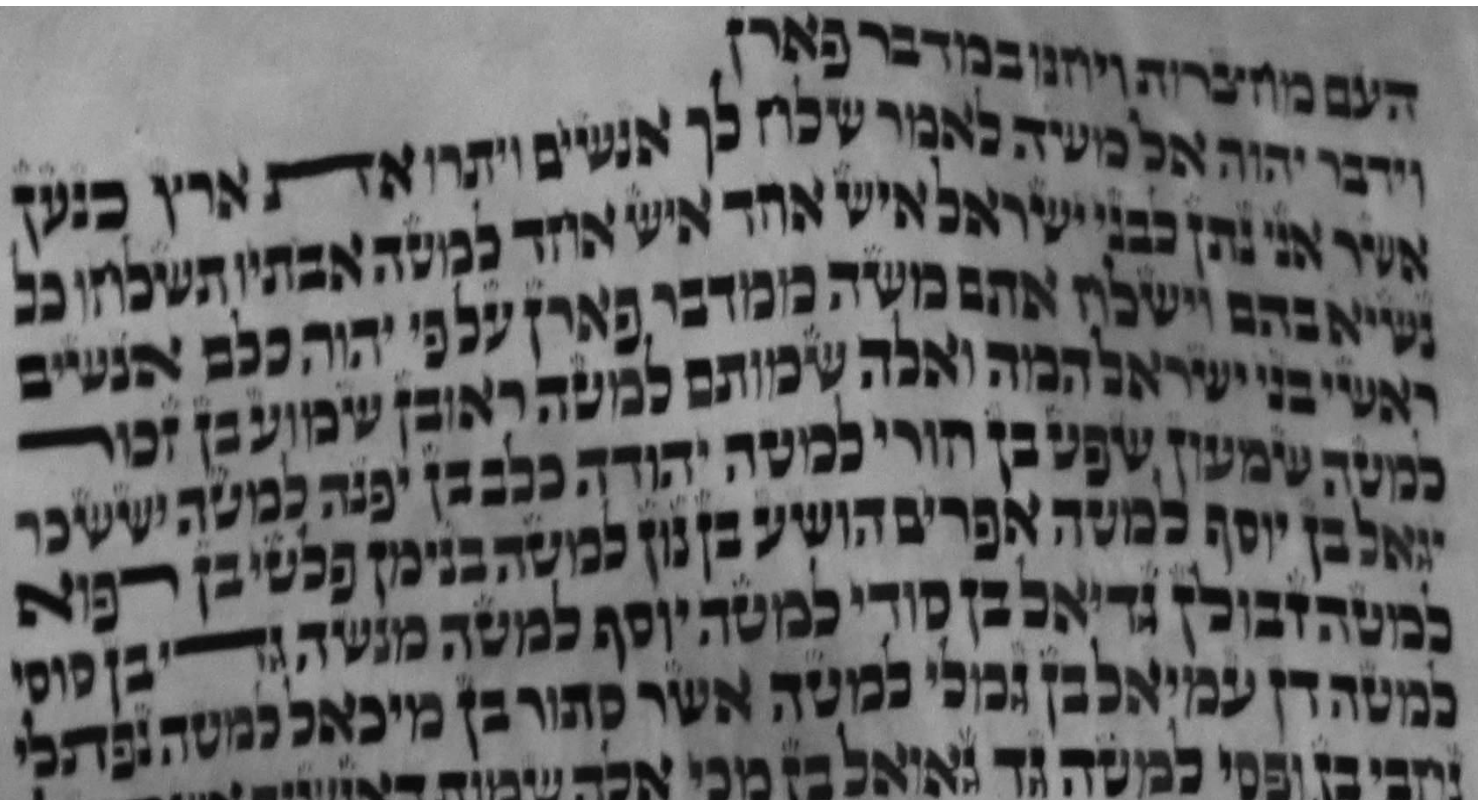 העם מחצרות ויחנו במדבר פארן
וידבר יהוה אל משה לאמר שלח לך אנשים ויתרו את ארץ כנען
אשר אני נתן לבני ישראל איש אחד איש אחד למטה אבתיו תשלחו כל
נשיא בהם וישלח אתם משה ממדבר פארן על פי יהוה כלם אנשים
ראשי בני ישראל המה ואלה שמותם למטה ראובן שמוע בן זכור
למטה שמעון שפט בן חורי למטה יהודה כלב בן יפנה למטה יששכר
יגאל בן יוסף למטה אפרים הושע בן נון למטה בנימן פלטי בן רפוא
למטה זבולן גדיאל בן סודי למטה יוסף למטה מנשה גדי בן סוסי
למטה דן עמיאל בן גמלי למטה אשר סתור בן מיכאל למטה נפתלי
נחבי בן ופסי למטה גד גאואל בן מכי אלה שמות האנשים אשר